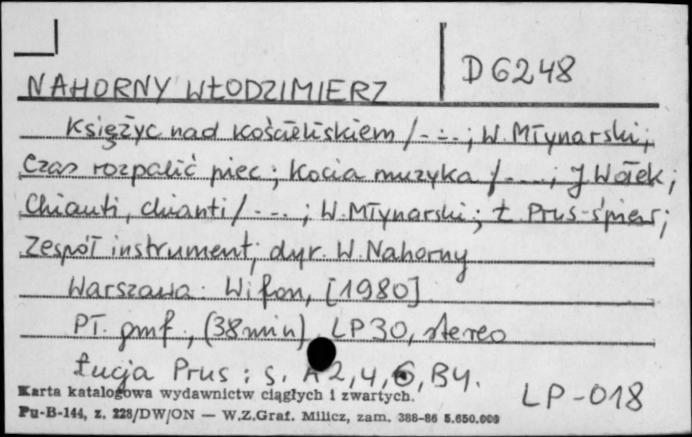 D 6248
NAHORNY WŁODZIMIERZ
Księżyc nad Kościeliskiem /-..-; W. Młynarski;
Czas rozpalić piec; Kocia muzyka /-...; J. Wołek;
Chianti, chianti /-...; W. Młynarski; Ł. Prus-śpiew;
Zespół instrument; dyr. W. Nahorny
Warszawa: Wifon, [1980]
Pł. gmf., (38 min), LP30, stereo
Łucja Prus: s. A2, 4, 6, B4.
LP-018
Karta katalogowa wydawnictw ciągłych i zwartych.
Pu-B-144, z. 228/DW/ON — W.Z.Graf. Milicz, zam. 388-86 5.650.000